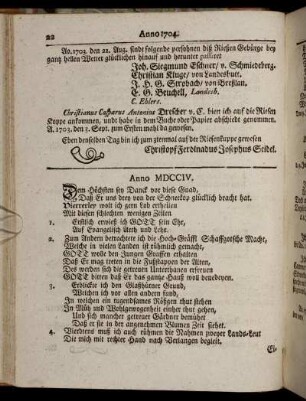 22
Anno 1704.
Ao. 1703. den 21. Aug. sindt folgende personen diß Riesen Gebürge bey
gantz hellen Wetter glücklichen hinauf und herunter passiret
Joh. Siegmund Eschner / v. Schmiedeberg.
Christian Kluge / von Landeshutt.
J. H. G. Strobach / von Breßlau.
T. G. Beuchell, Landesh.
C. Ehlers.
Christianus Casparus Antonius Drescher v. C. bien ich auf die Riesen
Koppe gekommen, und habe in dem Buche oder Papier abschiedt genommen.
A. 1703. den 3. Sept. zum Ersten mahl da gewesen.
Eben denselben Tag bin ich zum ztenmal auf der Riesenkuppe gewesen
Christoph Ferdinadus Josephus Seidel.
Anno MDCCIV.
Dem Höchsten sey Danck vor diese Gnad,
Daß Er uns drey von der Schneelee glücklich bracht hat.
Viererley wolt ich gern lob ertheilen
Mit diesen schlechten wenigen Zeilen
1. Erstlich erweiß ich GOTT sein Ehr,
Auf Evangelisch Arth und Lehr.
2. Zum Andern betrachtete ich die Hoch-Gräffl Schaffgotsche Macht,
Welche in vielen Landen ist rühmlich gemacht,
GOTT wolle den Jungen Graffen erhalten
Daß Er mag treten in die Fußstappen der Alten,
Des werden sich die getreuen Unterthanen erfreuen
GOTT bitten daß Er das gantz Hauß woll benedeyen.
3. Erblickte ich den Glaßhütter Grund,
Welchen ich vor allen andern fund,
In welchen ein tugendsames Röschen thut stehen
In Müh und Wohlgewogenheit einher thut gehen,
Und sich mancher getreuer Gärtner bemühet
Daß er sie in der angenehmen Blumen Zeit siehet.
4. Vierdtens muß ich auch rühmen die Nahmen zweyer Lands-Leut
Die mich mit rechter Hand nach Verlangen begleit.